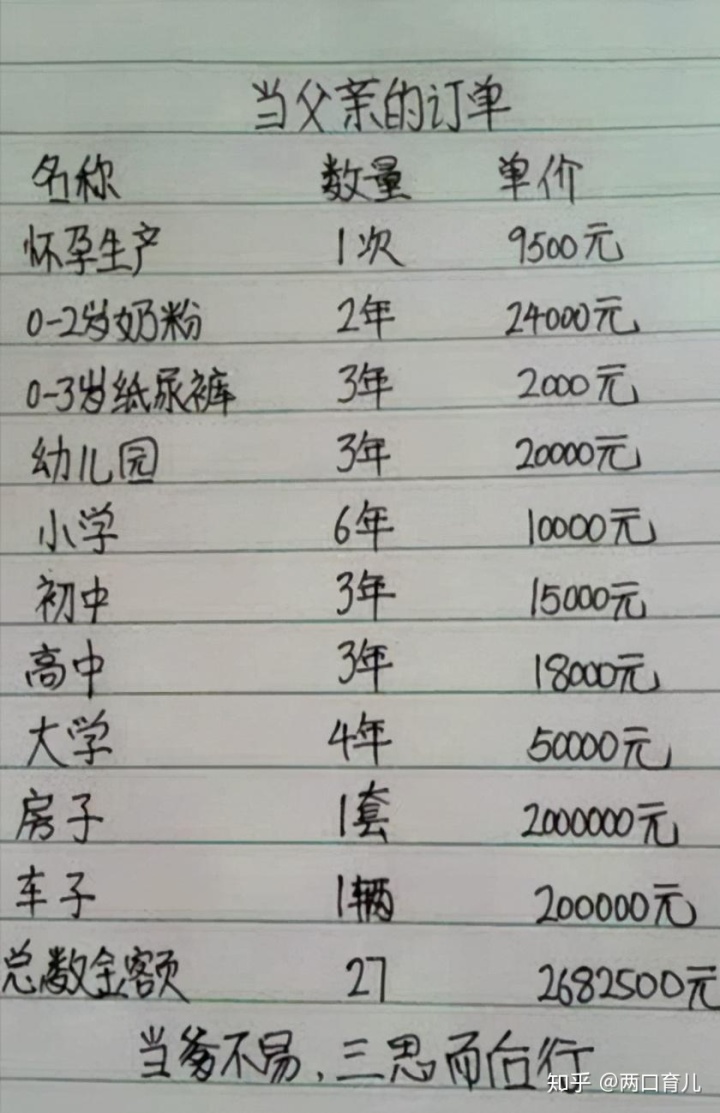 当父亲的订单
名称 数量 单价
怀孕生产 1次 9500元
0-2岁奶粉 2年 24000元
0-3岁纸尿裤 3年 2000元
幼儿园 3年 20000元
小学 6年 10000元
初中 3年 15000元
高中 3年 18000元
大学 4年 50000元
房子 1套 2000000元
车子 1辆 200000元
总数金额 27 2682500元
当爹不易、三思而后行
知乎 @两口育儿